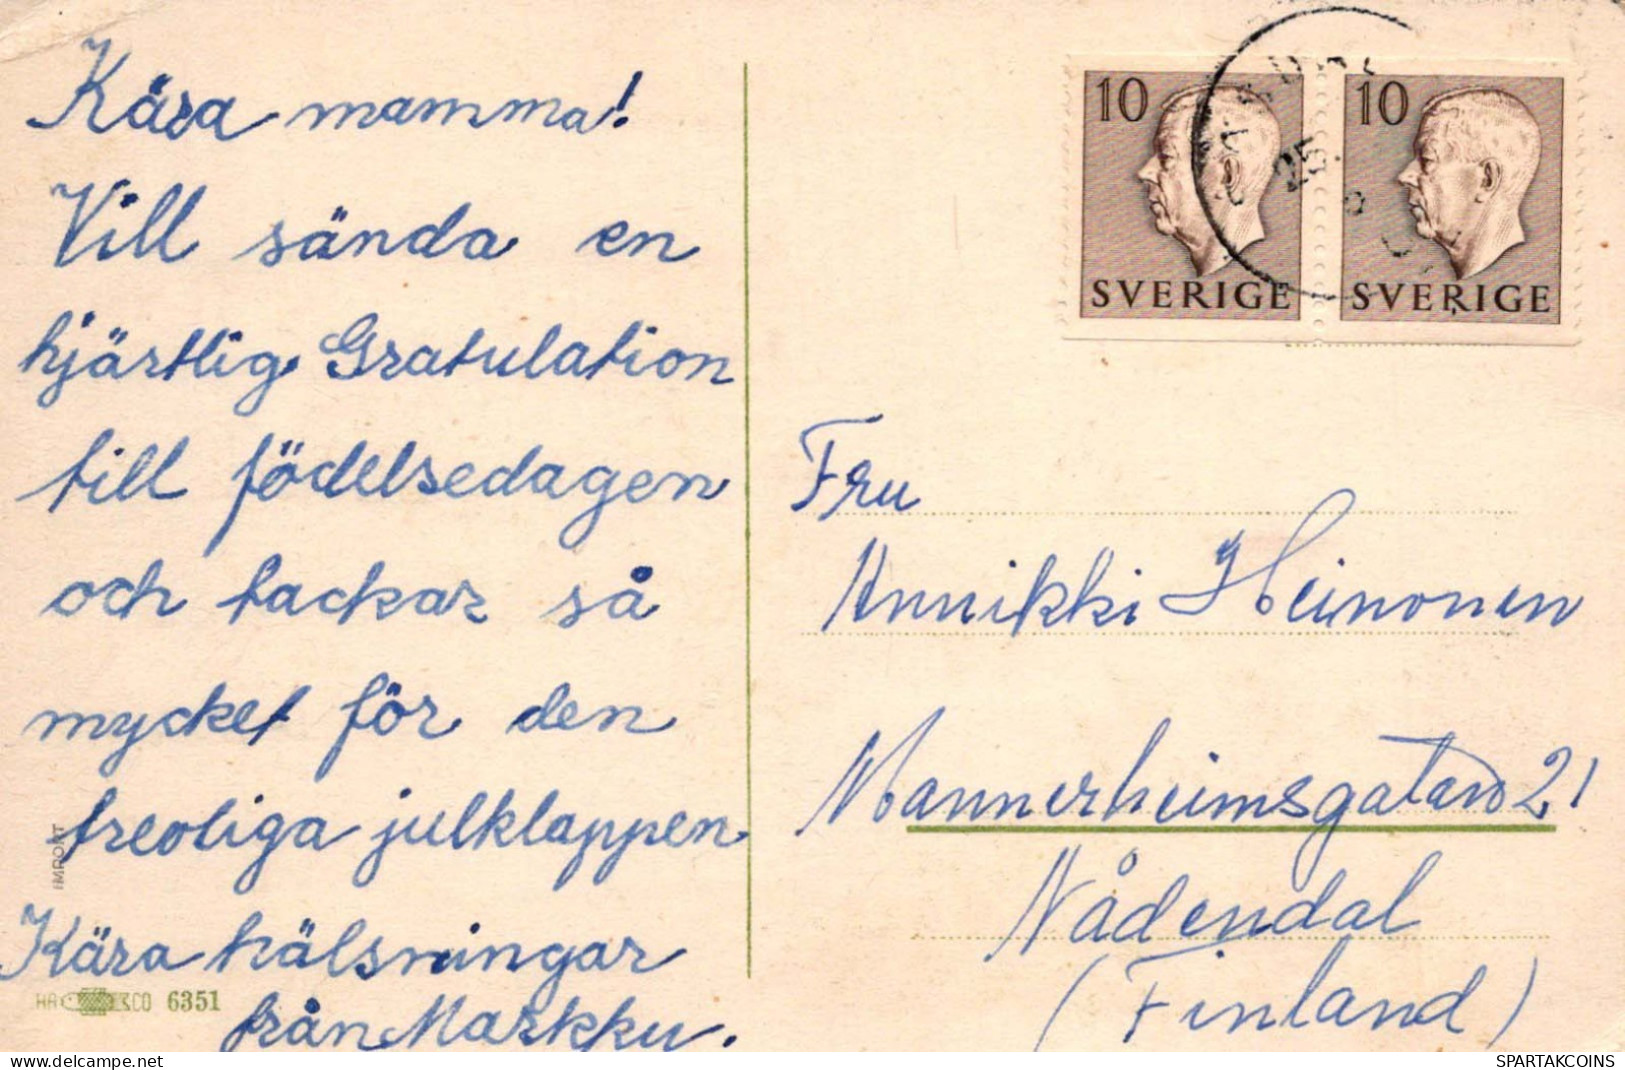 Kära mamma!
Vill sända en
hjärtlig Gratulation
till födelsedagen
och tackar så
mycket för den
treoliga julklappen
Kära hälsningar
från Markku.
IMPORT
HACO 6351
10
SVERIGE
10
SVERIGE
25
Fru
Annikki Heinonen
Mannerheimsgatan 21
Nådendal
(Finland)
delcampe.net
SPARTAKCOINS